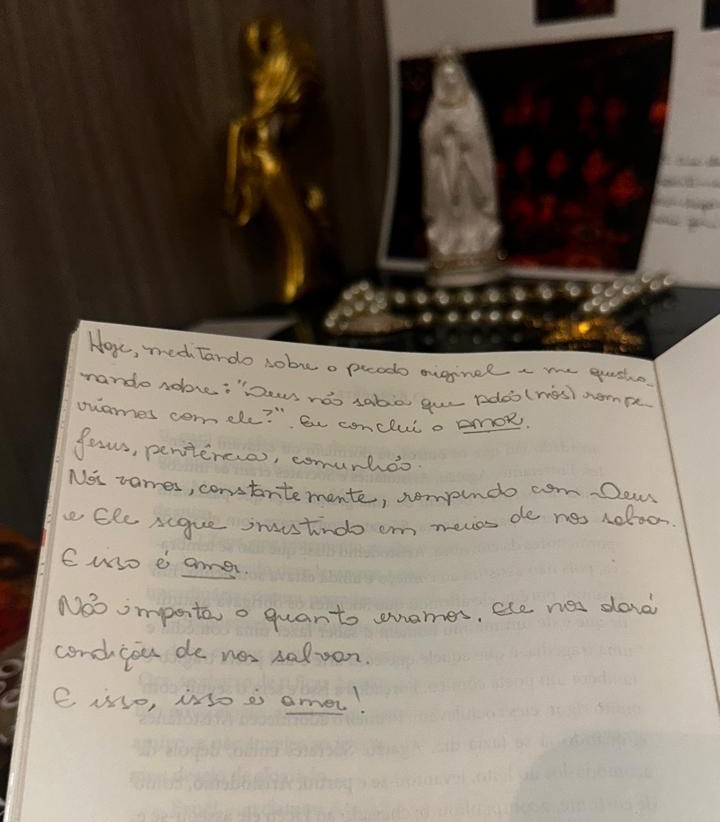 Hoje, meditando sobre o pecado original e me questio-
nando sobre: "Deus não sabia que Adão (nós) rompe-
ríamos com ele?". Eu concluí o AMOR.
Jesus, penitência, comunhão.
Nós vamos, constantemente, rompendo com Deus
e Ele segue insistindo em meios de nos salvar.
E isso é amor.
Não importa o quanto erramos. Ele nos dará
condições de nos salvar.
E isso, isso é amor!